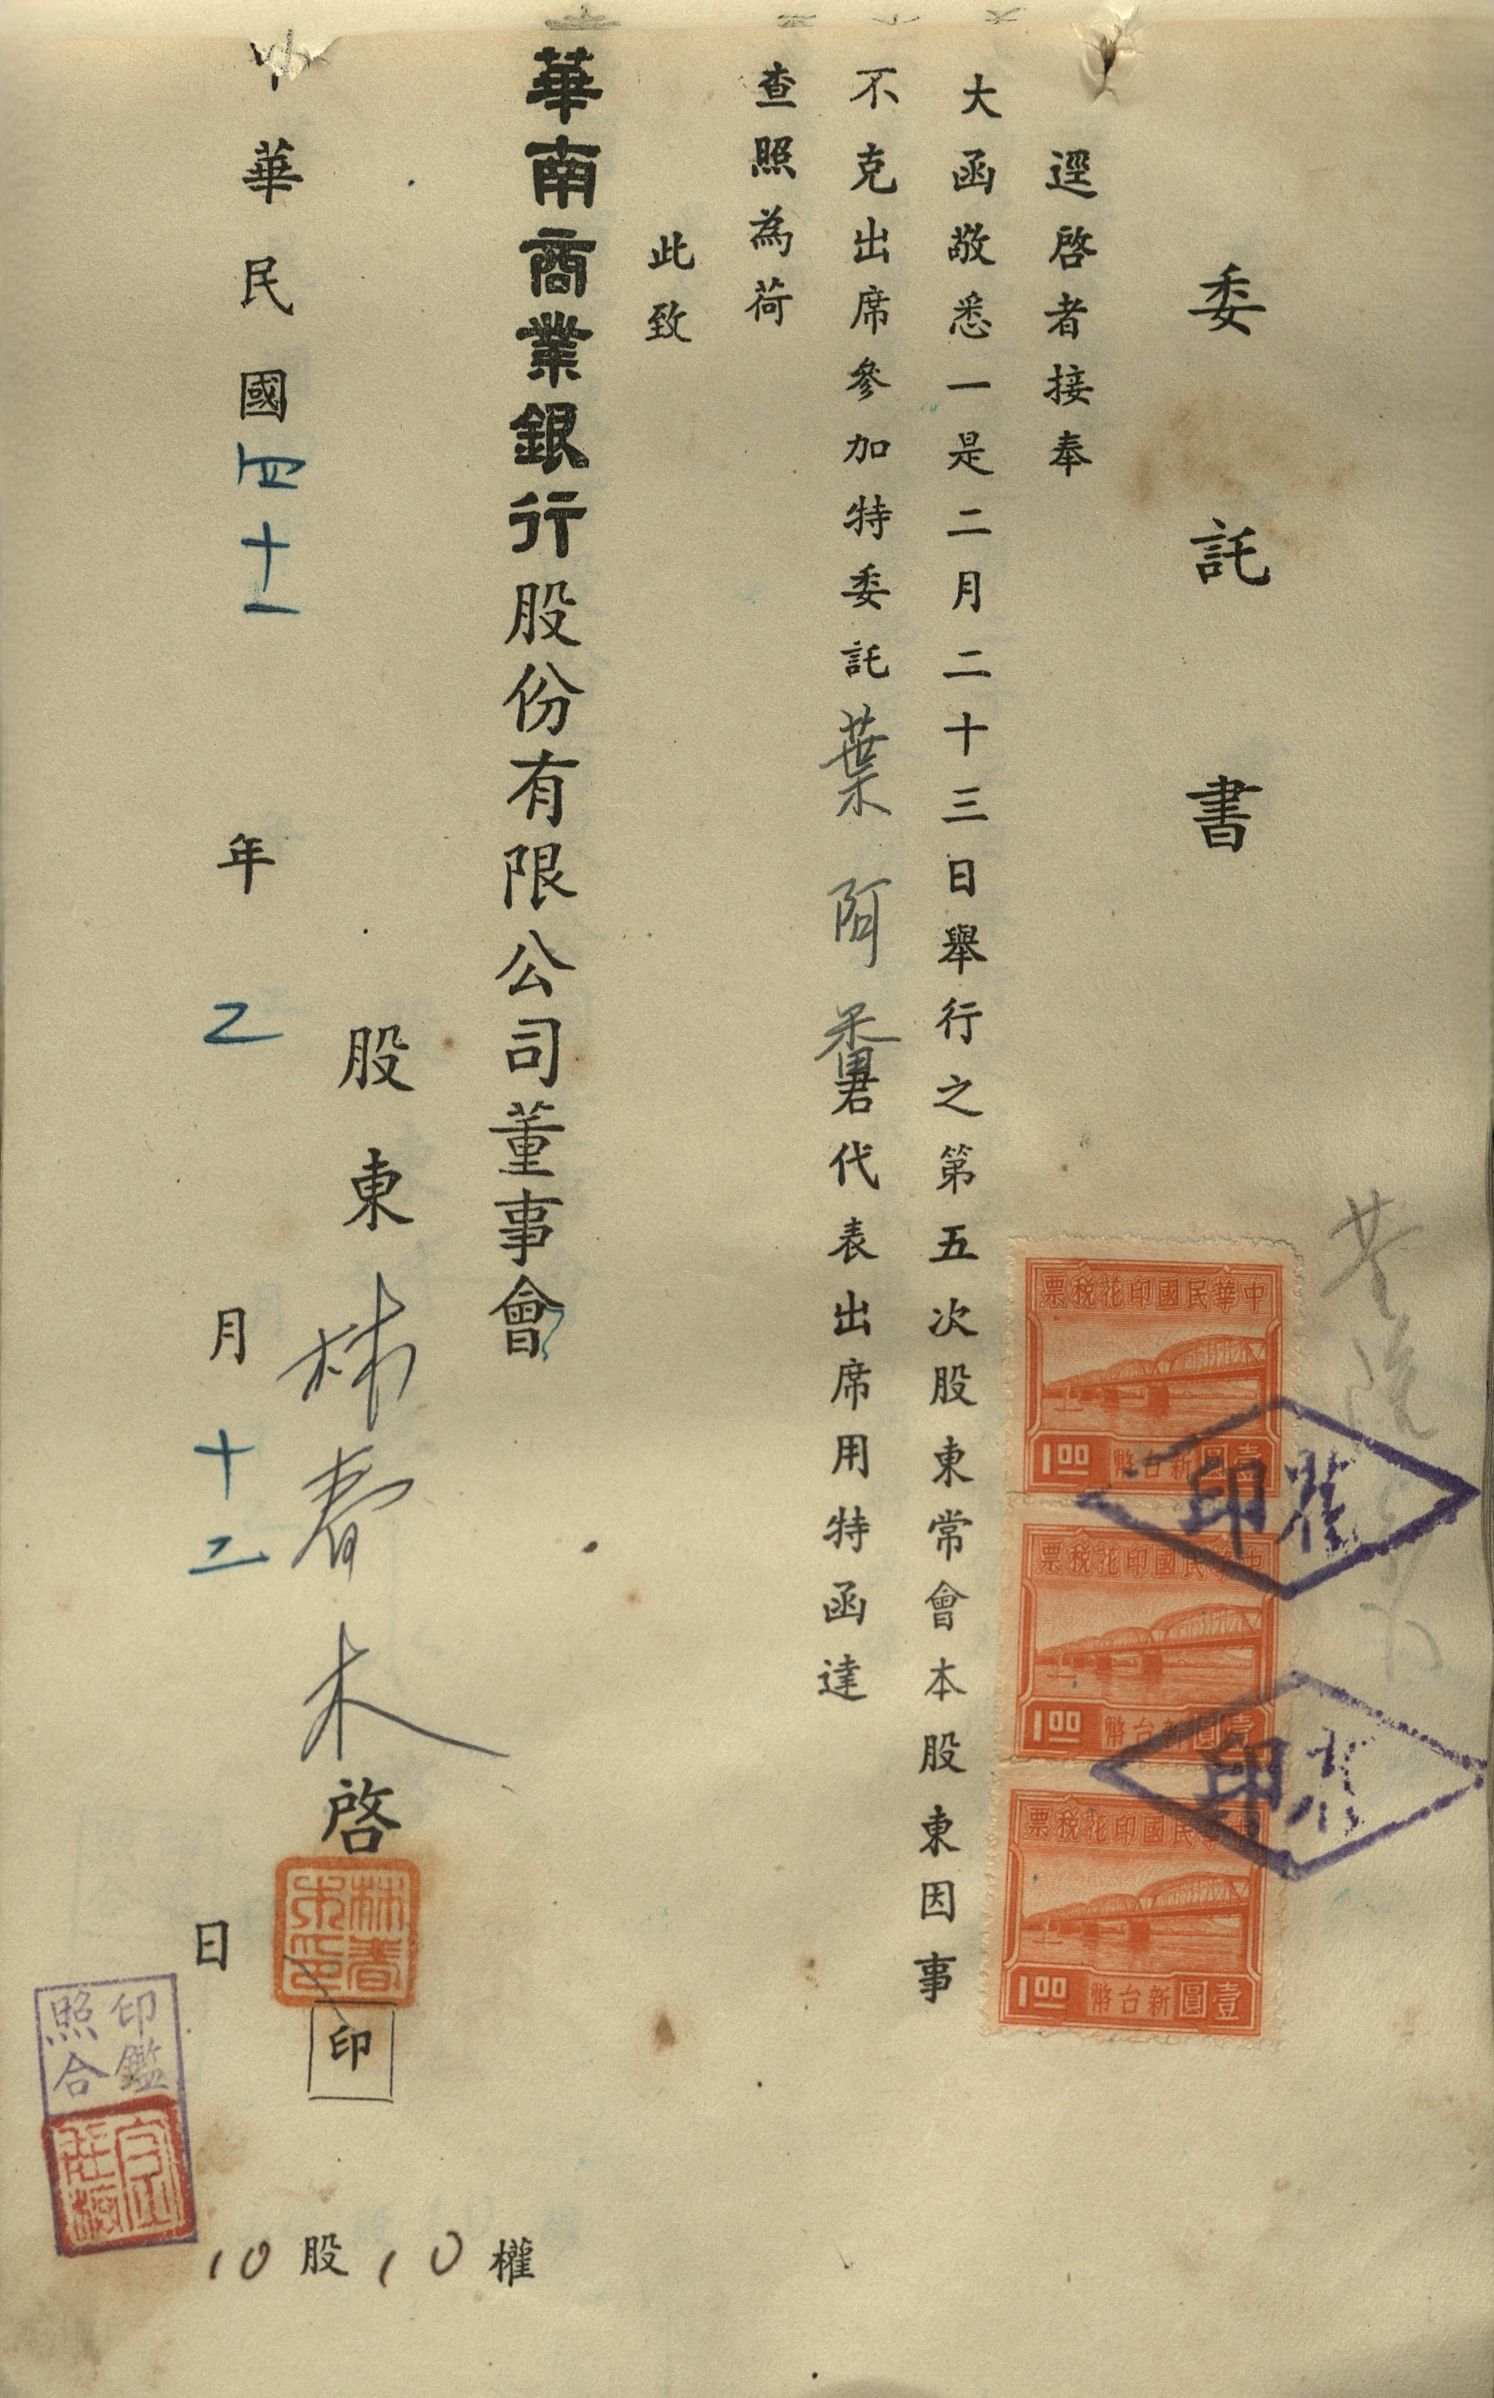 委託書
逕啓者接奉
大函敬悉一是二月二十三日舉行之第五次股東常會本股東因事
不克出席參加特委託葉阿番君代表出席用特函達
查照為荷
此致
華南商業銀行股份有限公司董事會
股東林春木啓
印
林春木印
中華民國四十一年乙月十二日
印鑑照合
10股10權
中華民國印花稅票
壹圓新台幣
1.00
中華民國印花稅票
壹圓新台幣
1.00
中華民國印花稅票
壹圓新台幣
1.00
印
印